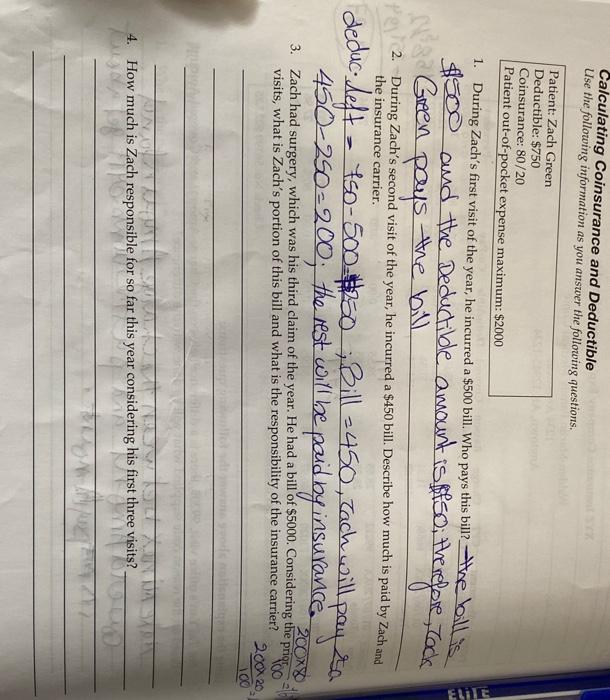 Calculating Coinsurance and Deductible
Use the following information as you answer the following questions.
Patient: Zach Green
Deductible: $750
Coinsurance: 80/20
Patient out-of-pocket expense maximum: $2000
1. During Zach's first visit of the year, he incurred a $500 bill. Who pays this bill? the bill is
$500 and the Deductible amount is $750; therefore, Zack
Green pays the bill
2. During Zach's second visit of the year, he incurred a $450 bill. Describe how much is paid by Zach and
the insurance carrier.
deduc. left = 750-500=$250 ; Bill = 450, Zach will pay 250
450-250=200. the rest will be paid by insurance.
3. Zach had surgery, which was his third claim of the year. He had a bill of $5000. Considering the prior
visits, what is Zach's portion of this bill and what is the responsibility of the insurance carrier?
200×8
100
200×20
100
4. How much is Zach responsible for so far this year considering his first three visits?
ELITE